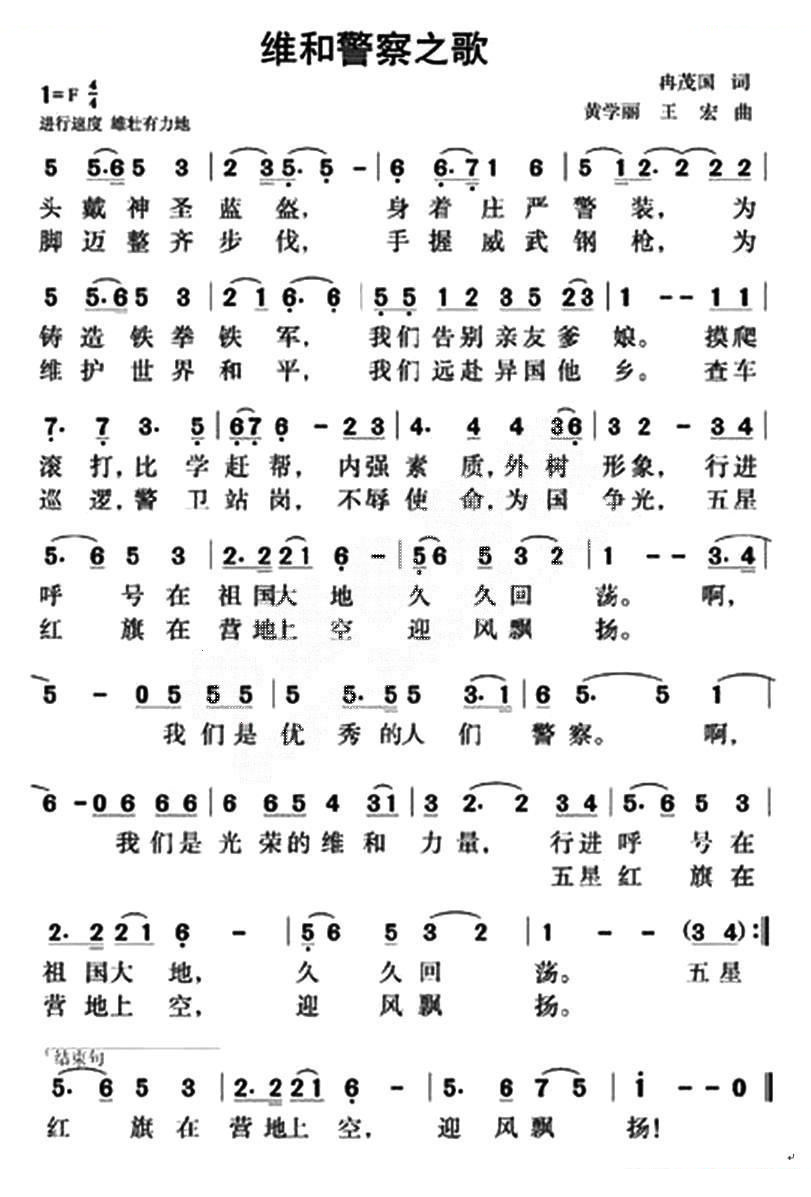 维和警察之歌
1=F 4/4
冉茂国 词
进行速度 雄壮有力地
黄学丽 王 宏 曲
5 5·6 5 3 | 2 3 5· 5 – | 6 6·7 1 6 | 5 1 2· 2 2 2 |
头戴神圣蓝盔， 身着庄严警装， 为
脚迈整齐步伐， 手握威武钢枪， 为
5 5·6 5 3 | 2 1 6· 6 | 5 5 1 2 3 5 2 3 | 1 – – 1 1 |
铸造铁拳铁军， 我们告别亲友爹娘。 摸爬
维护世界和平， 我们远赴异国他乡。 查车
7· 7 3· 5 | 6 7 6 – 2 3 | 4· 4 4 3 6 | 3 2 – 3 4 |
滚打，比学赶帮， 内强素质，外树形象，行进
巡逻，警卫站岗， 不辱使命，为国争光，五星
5· 6 5 3 | 2· 2 2 1 6 – | 5 6 5 3 2 | 1 – – 3· 4 |
呼号在祖国大地久久回荡。啊，
红旗在营地上空迎风飘扬。
5 – 0 5 5 5 | 5 5· 5 5 3· 1 | 6 5· 5 1 |
我们是优秀的人们警察。啊，
6 – 0 6 6 6 6 | 6 6 5 4 3 1 | 3 2· 2 3 4 | 5· 6 5 3 |
我们是光荣的维和力量， 行进呼号在
五星红旗在
2· 2 2 1 6 – | 5 6 5 3 2 | 1 – – (3 4) :‖
祖国大地， 久久回荡。 五星
营地上空， 迎风飘扬。
结束句
5· 6 5 3 | 2· 2 2 1 6 – | 5· 6 7 5 | i – – 0 ‖
红旗在营地上空， 迎风飘扬！